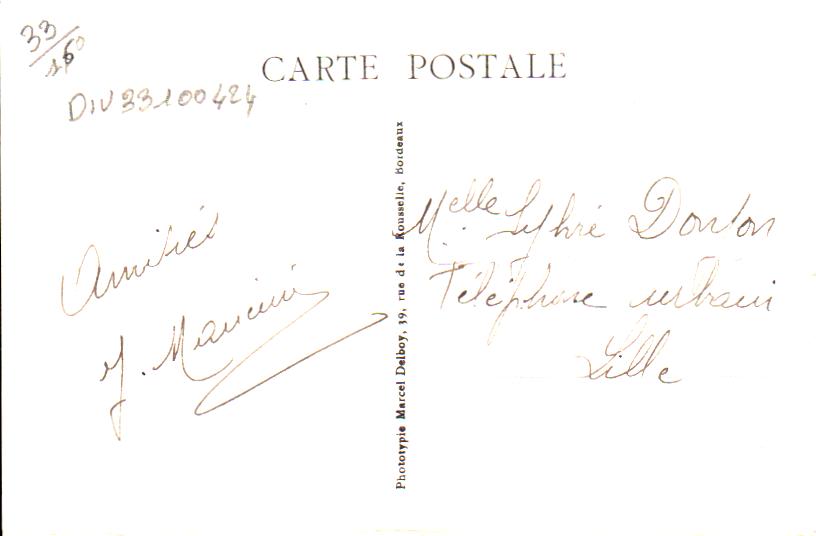 33/
15⁰
CARTE POSTALE
DIV33100424
Phototypie Marcel Delboy, 39, rue de la Rousselle, Bordeaux
Amitiés
J. Mancini
Melle Sylvie Donton
Téléphone urbain
Lille